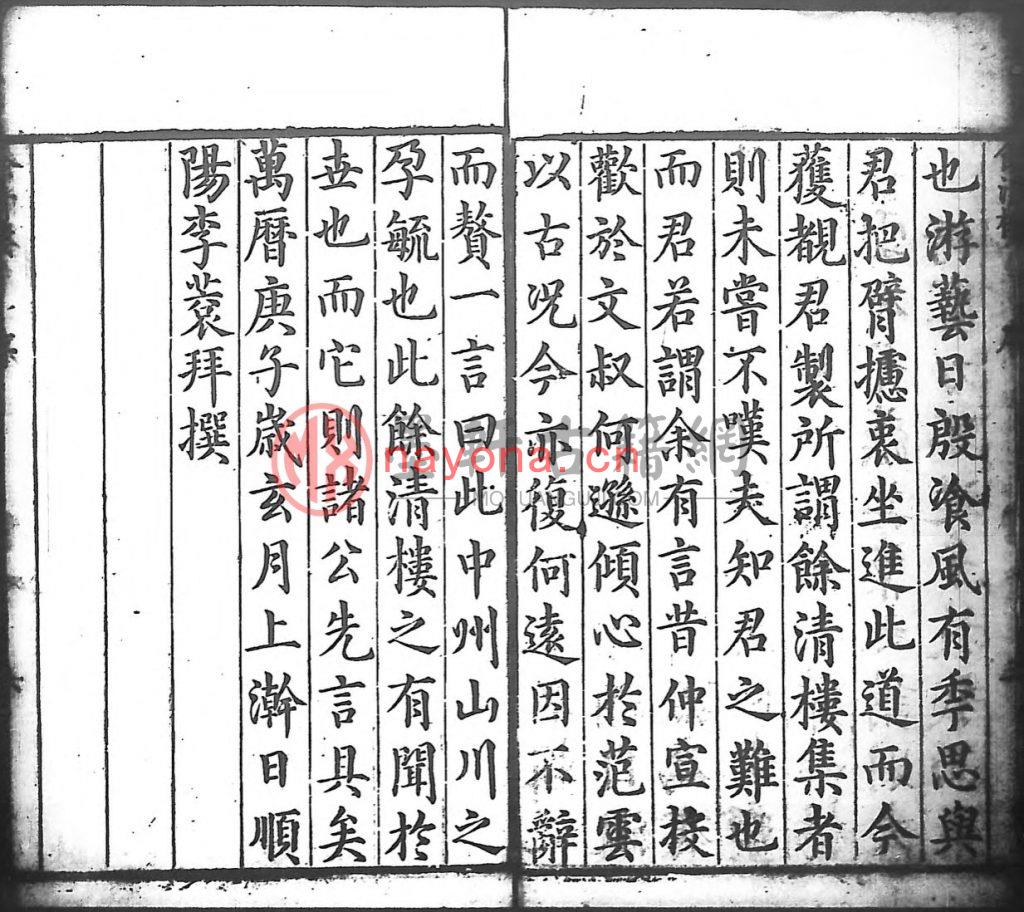 也游藝日殷飡風有季思與
君把臂攄衷坐進此道而今
獲覩君製所謂餘清樓集者
則未嘗不嘆夫知君之難也
而君若謂余有言昔仲宣投
歡於文叔何遜傾心於范雲
以古況今亦復何遠因不辭
而贅一言曰此中州山川之
孕毓也此餘清樓之有聞於
世也而它則諸公先言具矣
萬曆庚子歲玄月上澣日順
陽李蓘拜撰
nayona.cn